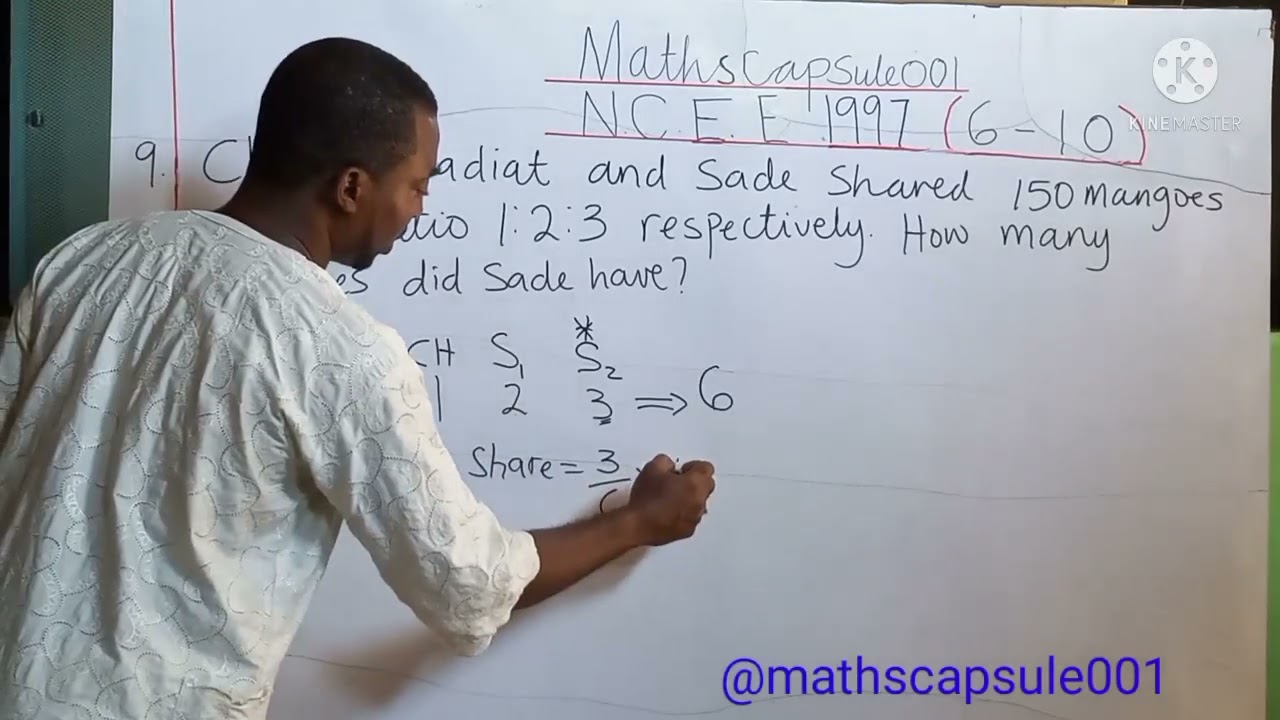 Mathscapsule001
N.C.E.E. 1997 (6-10)
KINEMASTER
9. and Sade Shared 150 mangoes
1:2:3 respectively. How many
did Sade have?
CH S₁ S₂*
1 2 3 ⟹ 6
Share = 3/
@mathscapsule001